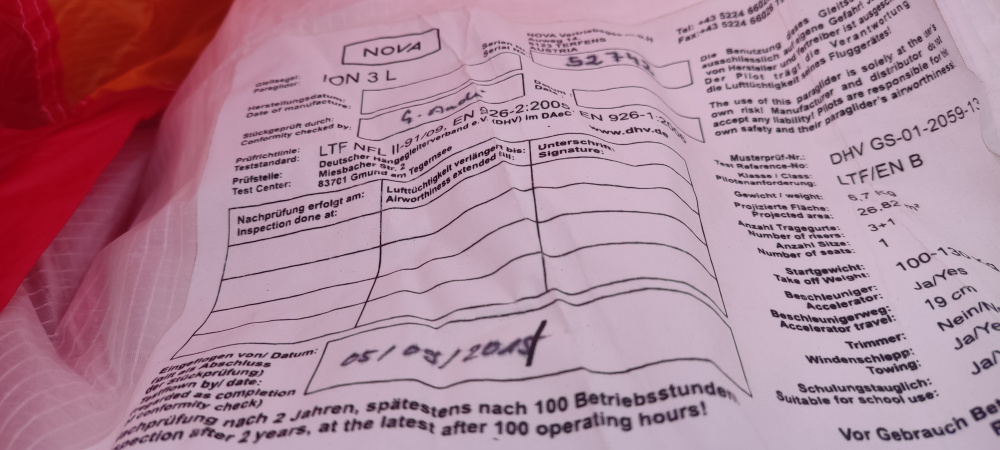 NOVA
NOVA
Auweg 14
6123 TERFENS
AUSTRIA
Tel: +43 5224
Fax:+43 5224
Gleitsegel:
Paraglider:
ION 3 L
Herstellungsdatum:
Date of manufacture:
Datum
Stückgeprüft durch:
Conformity checked by:
Prüfrichtlinie:
Teststandard:
LTF NFL II-91/09, EN 926-2:200 EN 926-1:
Prüfstelle:
Test Center:
Deutscher Hängegleiterverband e.V. (DHV) im DAeC
Miesbacher Str. 2
83701 Gmund am Tegernsee
www.dhv.de
Nachprüfung erfolgt am:
Inspection done at:
Lufttüchtigkeit verlängert bis:
Airworthiness extended till:
Unterschrift
Signature:
Eingeflogen von/ Datum:
(gilt als Abschluss
der Stückprüfung)
Testflown by/ date:
(regarded as completion
of conformity check)
Nachprüfung nach 2 Jahren, spätestens nach 100 Betriebsstunden
Inspection after 2 years, at the latest after 100 operating hours!
Die Benutzung dieses
ausschliesslich auf eigene Gefahr!
von Hersteller und Vertreiber ist
Der Pilot trägt die Verantwortung
die Lufttüchtigkeit seines Fluggerätes!
The use of this paraglider is solely at the
own risk! Manufacturer and distributor do not
accept any liability! Pilots are responsible for
own safety and their paraglider's airworthiness
Musterprüf-Nr.:
Test Reference-No:
DHV GS-01-2059-13
Klasse / Class:
Pilotenanforderung:
LTF/EN B
Gewicht / weight:
6,7 Kg
Projizierte Fläche:
Projected area:
26.82 m²
Anzahl Tragegurte:
Number of risers:
3+1
Anzahl Sitze:
Number of seats:
1
Startgewicht:
Take off Weight:
100-130
Beschleuniger:
Accelerator:
Ja/Yes
Beschleunigerweg:
Accelerator travel:
19 cm
Trimmer:
Nein/
Windenschlepp:
Towing:
Ja/
Schulungstauglich:
Suitable for school use:
Ja/
Vor Gebrauch